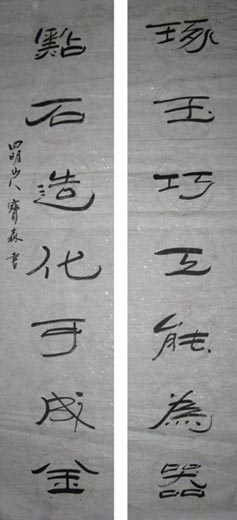 琢玉巧工能為器
點石造化可成金
四明山人寶森書